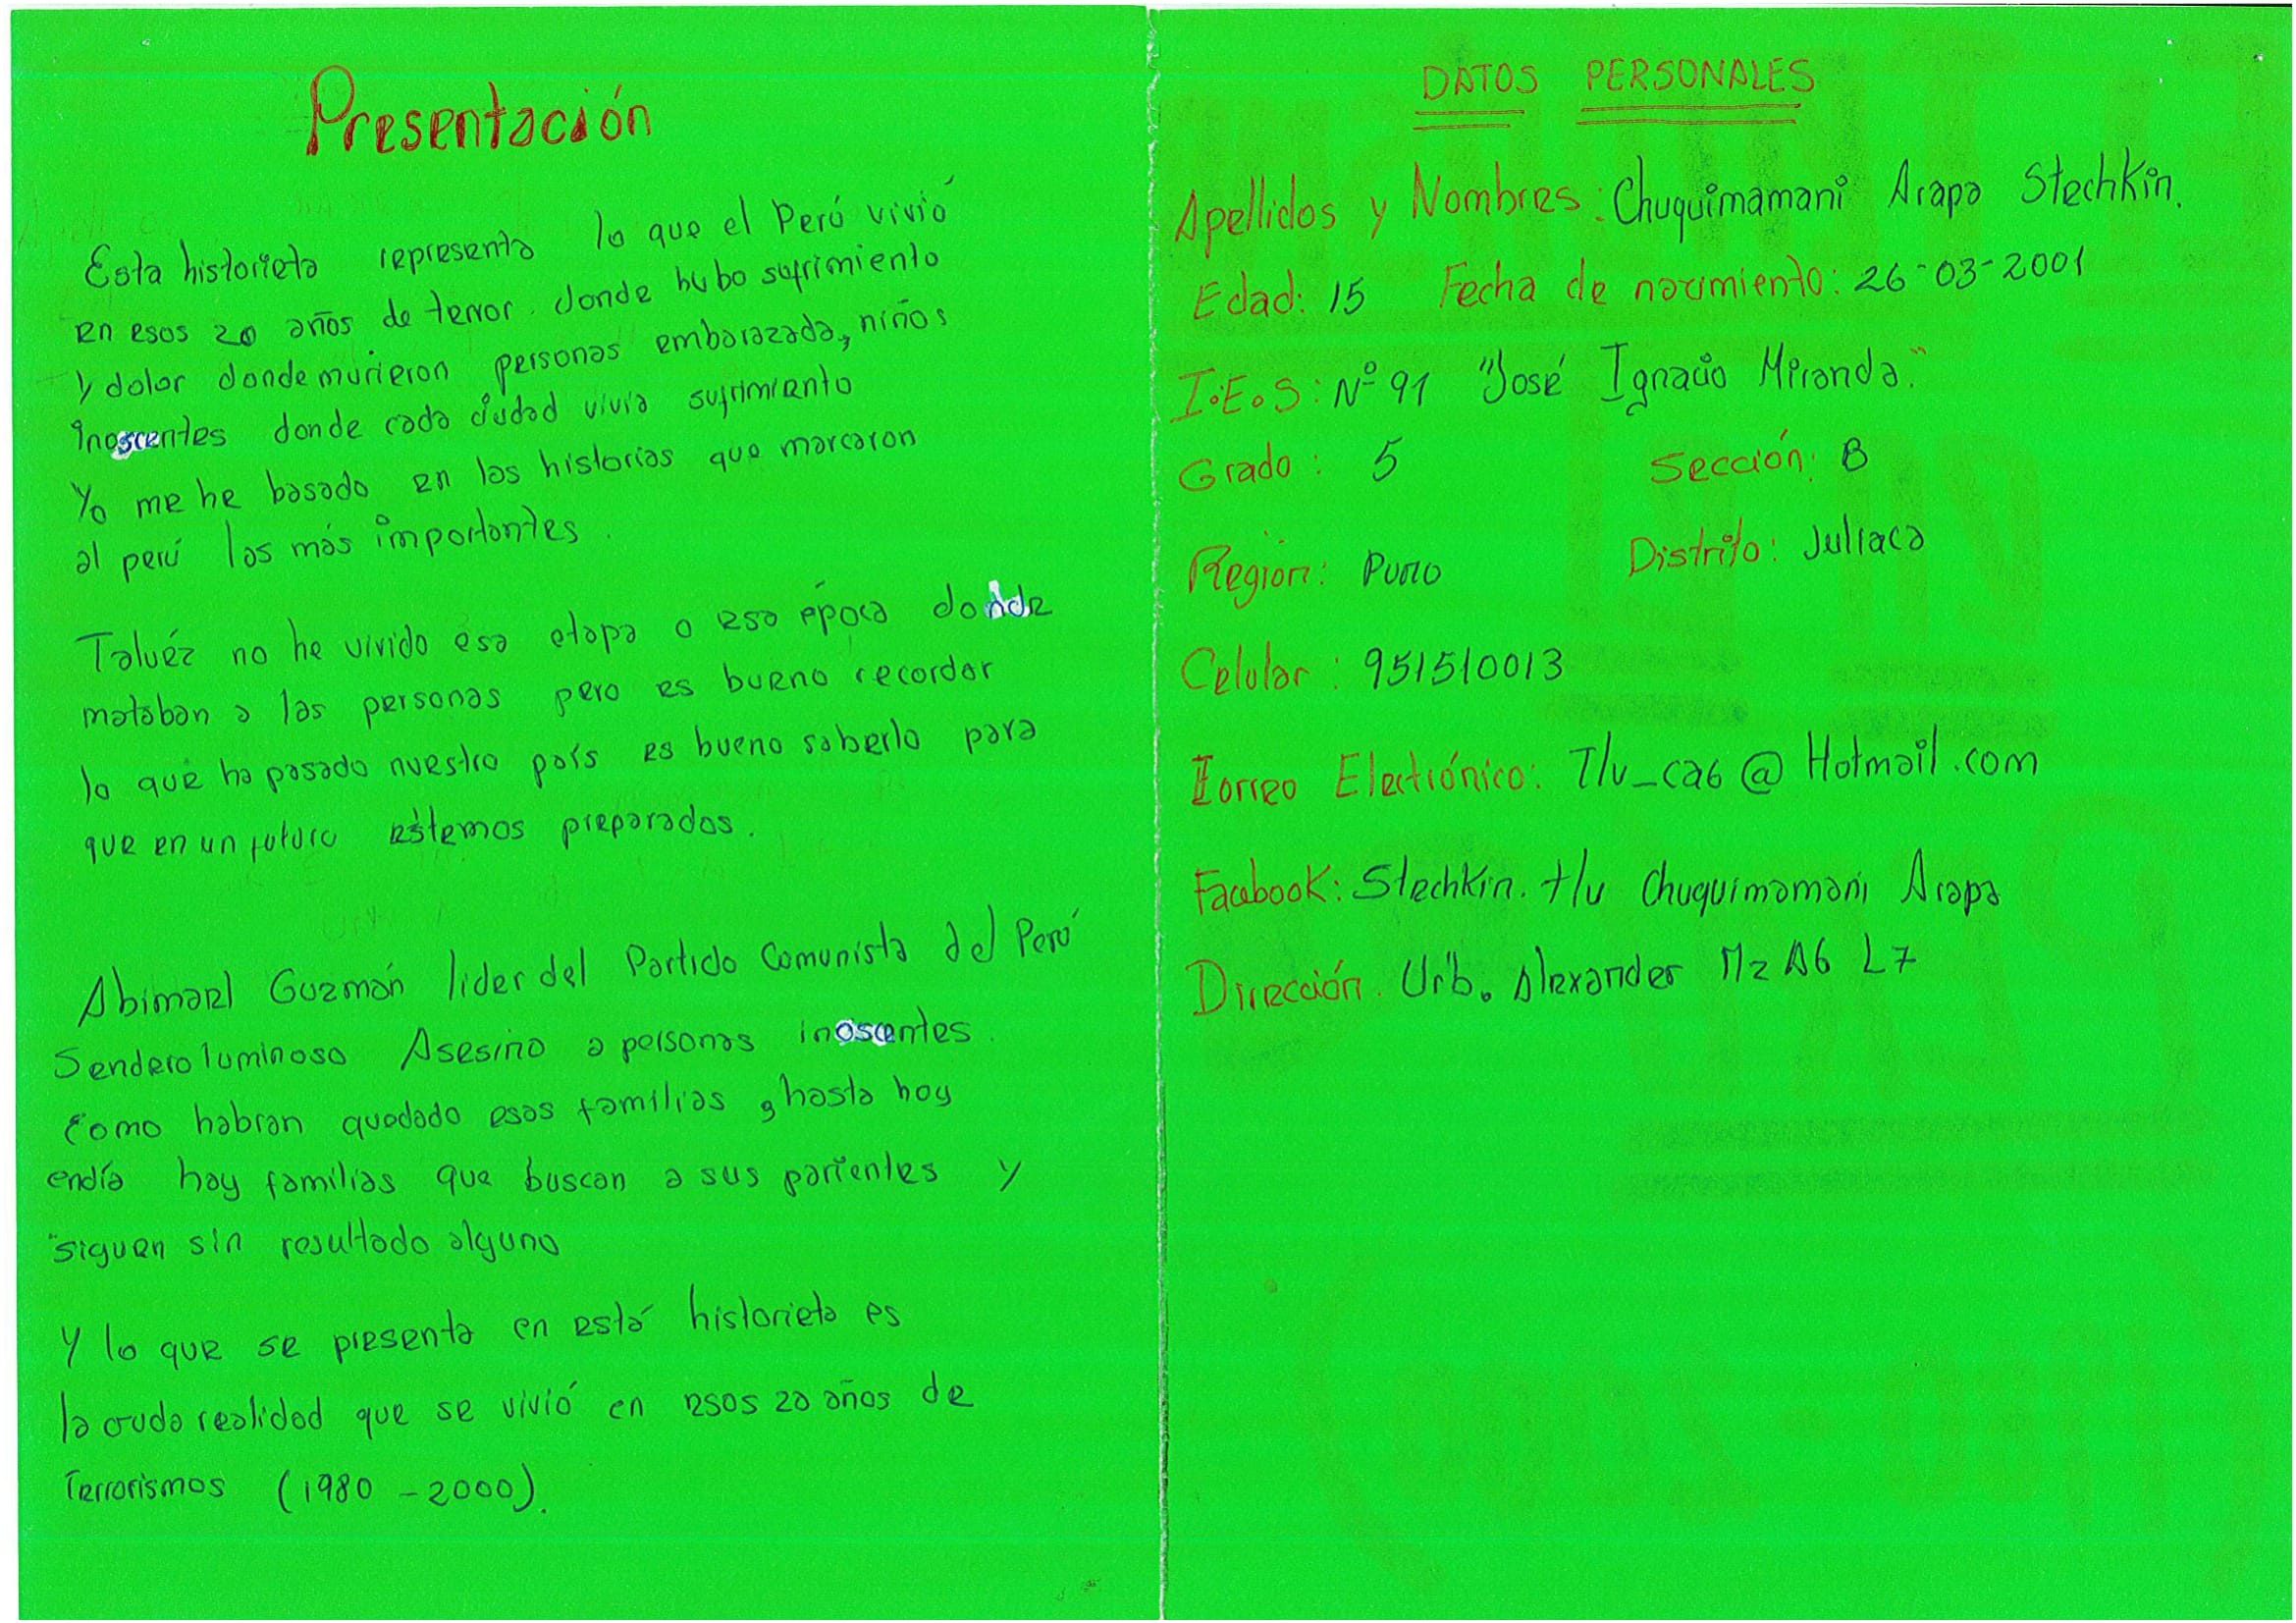 Presentación
Esta historieta representa lo que el Perú vivió
en esos 20 años de terror. donde hubo sufrimiento
y dolor donde murieron personas embarazada, niños
inoscentes donde cada ciudad vivia sufrimiento
Yo me he basado en las historias que marcaron
al perú las más importantes.
Talvéz no he vivido esa etapa o esa época donde
mataban a las personas pero es bueno recordar
lo que ha pasado nuestro país es bueno saberlo para
que en un futuro estemos preparados.
Abimael Guzmán lider del Partido Comunista del Perú
Sendero luminoso Asesino a personas inoscentes.
Como habran quedado esas familias, hasta hoy
endía hay familias que buscan a sus parientes y
siguen sin resultado alguno
Y lo que se presenta en está historieta es
la cruda realidad que se vivió en esos 20 años de
Terrorismos (1980 - 2000).
DATOS PERSONALES
Apellidos y Nombres: Chuquimamani Arapa Stechkin.
Edad: 15 Fecha de nacimiento: 26-03-2001
I.E.S: Nº 91 "José Ignacio Miranda."
Grado: 5 Sección: B
Región: Puno Distrito: Juliaca
Celular: 951510013
Correo Electrónico: Tlv_ca6@Hotmail.com
Facebook: Stechkin. tlv Chuquimamani Arapa
Dirección. Urb. Alexander Mz A6 L7